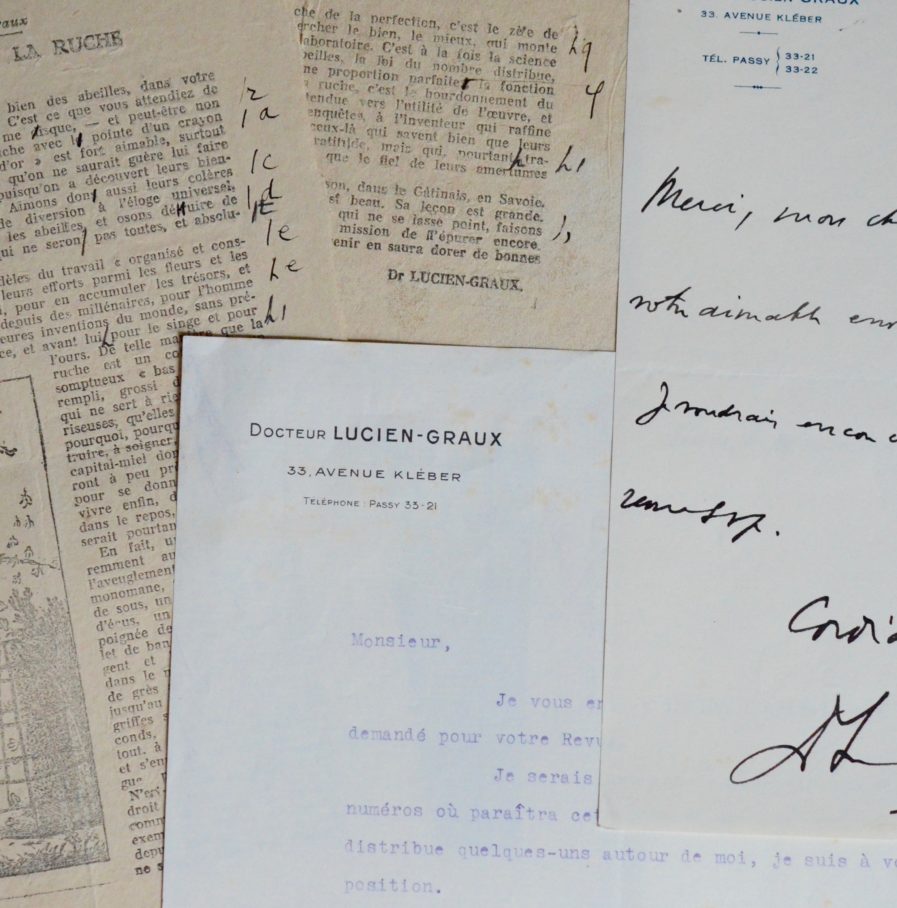 LA RUCHE
bien des abeilles, dans votre
C'est ce que vous attendiez de
me risque, — et peut-être non
che avec la pointe d'un crayon
d'or » est fort aimable, surtout
qu'on ne saurait guère lui faire
puisqu'on a découvert leurs bien-
Aimons donc aussi leurs colères
de diversion à l'éloge universel,
les abeilles, et osons déduire de
qui ne seront pas toutes, et absolu-
dèles du travail « organisé et cons-
leurs efforts parmi les fleurs et les
, pour en accumuler les trésors, et
depuis des millénaires, pour l'homme
eures inventions du monde, sans pré-
ce, et avant lui, pour le singe et pour
l'ours. De telle manière que la
ruche est un
somptueux « bas
rempli, grossi
qui ne sert à
riseuses, qu'elles
pourquoi,
truire, à soigner,
capital-miel
ront à peu
pour se
vivre enfin,
dans le repos,
serait pourtant
En fait,
remment au
l'aveuglement
monomane,
de sous, un
d'écus, un
poignée de
let de
gent et
dans le
de grès
jusqu'au
griffes
conds,
tout. à
et
gue
droit
ne
che de la perfection, c'est le zèle de
ercher le bien, le mieux, qui monte
laboratoire. C'est à la fois la science
beilles, la loi du nombre distribue,
ne proportion parfaite, la fonction
ruche, c'est le bourdonnement du
tendue vers l'utilité de l'œuvre, et
enquêtes, à l'inventeur qui raffine
ceux-là qui savent bien que leurs
ratitude, mais qui, pourtant, tra-
que le fiel de leurs amertumes
son, dans le Gâtinais, en Savoie.
st beau. Sa leçon est grande.
qui ne se lasse point, faisons
mission de s'épurer encore.
enir en saura dorer de bonnes
Dr LUCIEN-GRAUX.
DOCTEUR LUCIEN-GRAUX
33, AVENUE KLÉBER
TÉLÉPHONE : PASSY 33-21
Monsieur,
Je vous
demandé pour votre
Je serais
numéros où paraîtra
distribue quelques-uns autour de moi, je suis à
position.
LUCIEN GRAUX
33. AVENUE KLÉBER
TÉL. PASSY 33-21
33-22
Merci, mon
votre aimable
Je voudrais encore